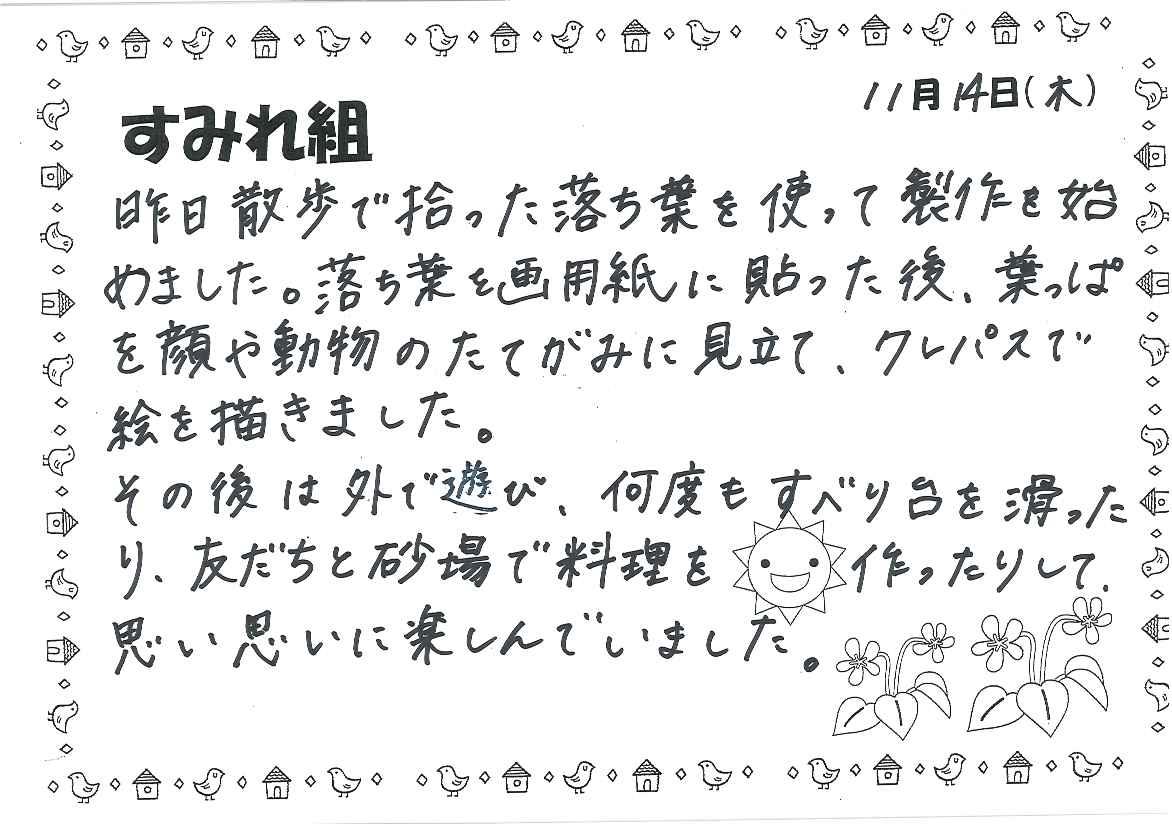 11月14日(木)
すみれ組
昨日散歩で拾った落ち葉を使って製作を始
めました。落ち葉を画用紙に貼った後、葉っぱ
を顔や動物のたてがみに見立て、クレパスで
絵を描きました。
その後は外で遊び、何度もすべり台を滑った
り、友だちと砂場で料理を作ったりして、
思い思いに楽しんでいました。